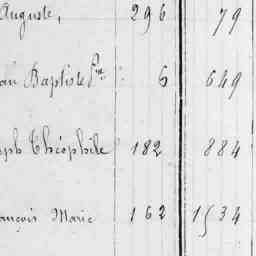 Auguste, 296 79
Baptiste Pre 6 649
Théophile 182 884
ançois Marie 162 1534